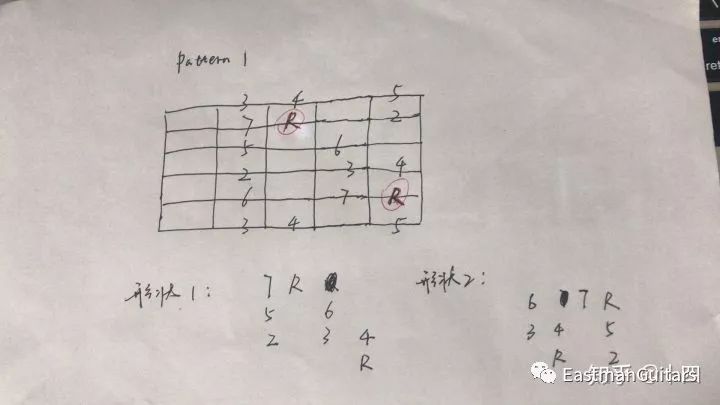 en
ret
Pattern 1
3 4 5
7 R 2
5 6
2 3 4
6 7 R
3 4 5
形状1: 7 R
5 6
2 3 4
R
形状2:
6 7 R
3 4 5
R 2
知乎
EastmanGuitars